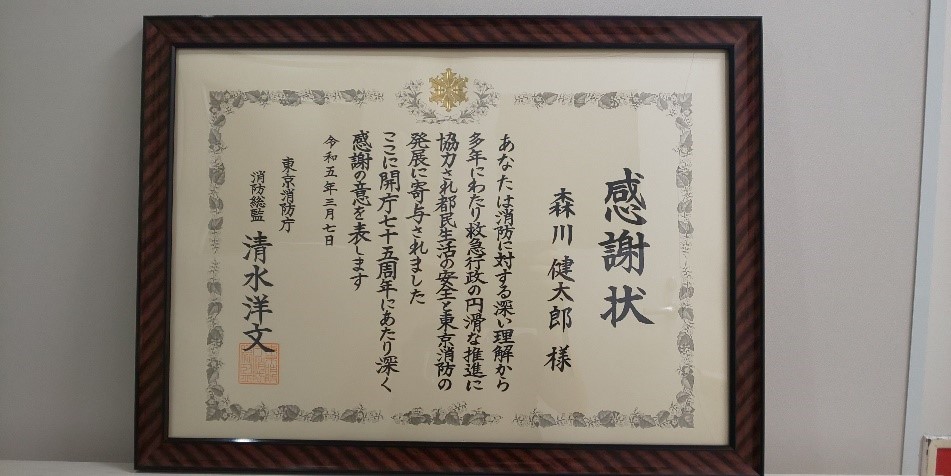 感謝状
森川健太郎 様
あなたは消防に対する深い理解から
多年にわたり救急行政の円滑な推進に
協力され都民生活の安全と東京消防の
発展に寄与されました
ここに開庁七十五周年にあたり深く
感謝の意を表します
令和五年三月七日
東京消防庁
消防総監 清水洋文